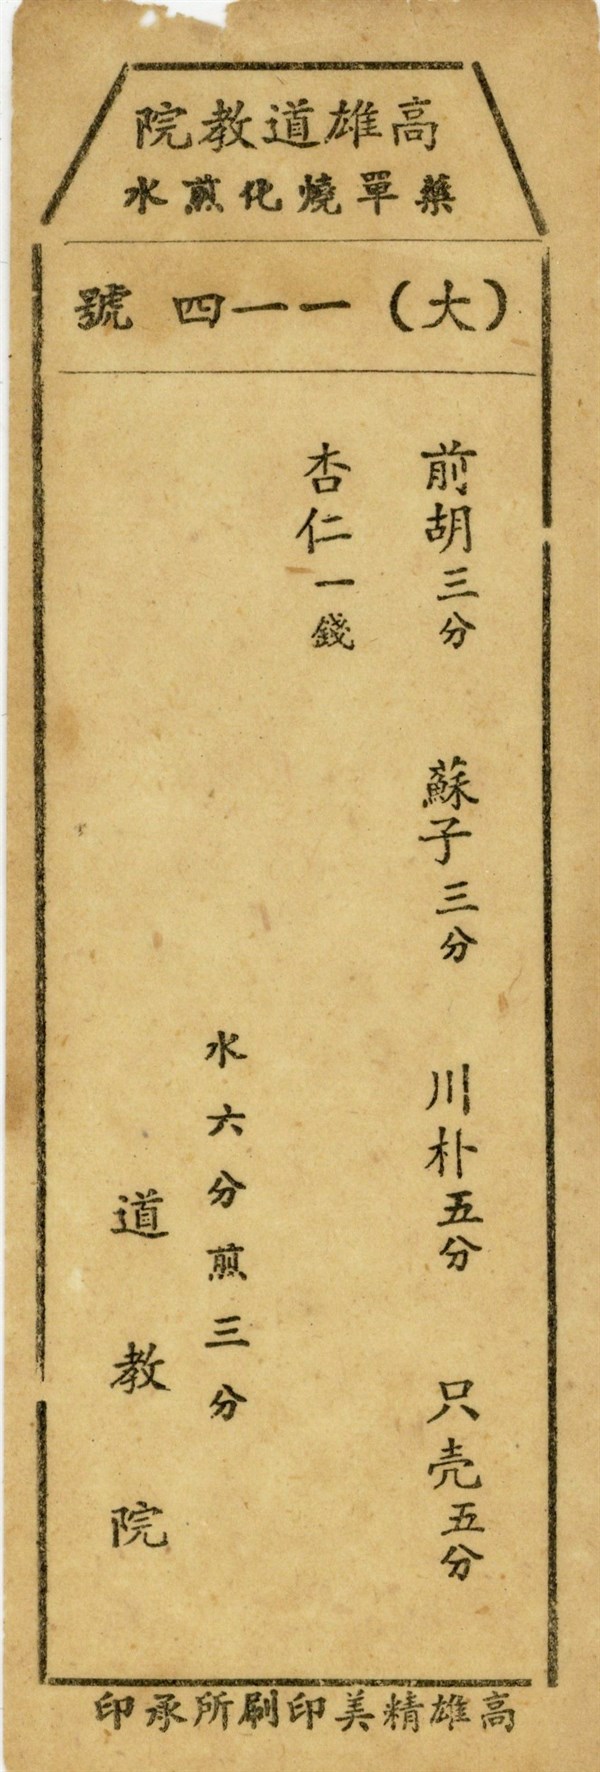 高雄道教院
藥單燒化煎水
(大)一一四號
前胡三分 蘇子三分 川朴五分 只壳五分
杏仁一錢
水六分煎三分
道教院
高雄精美印刷所承印